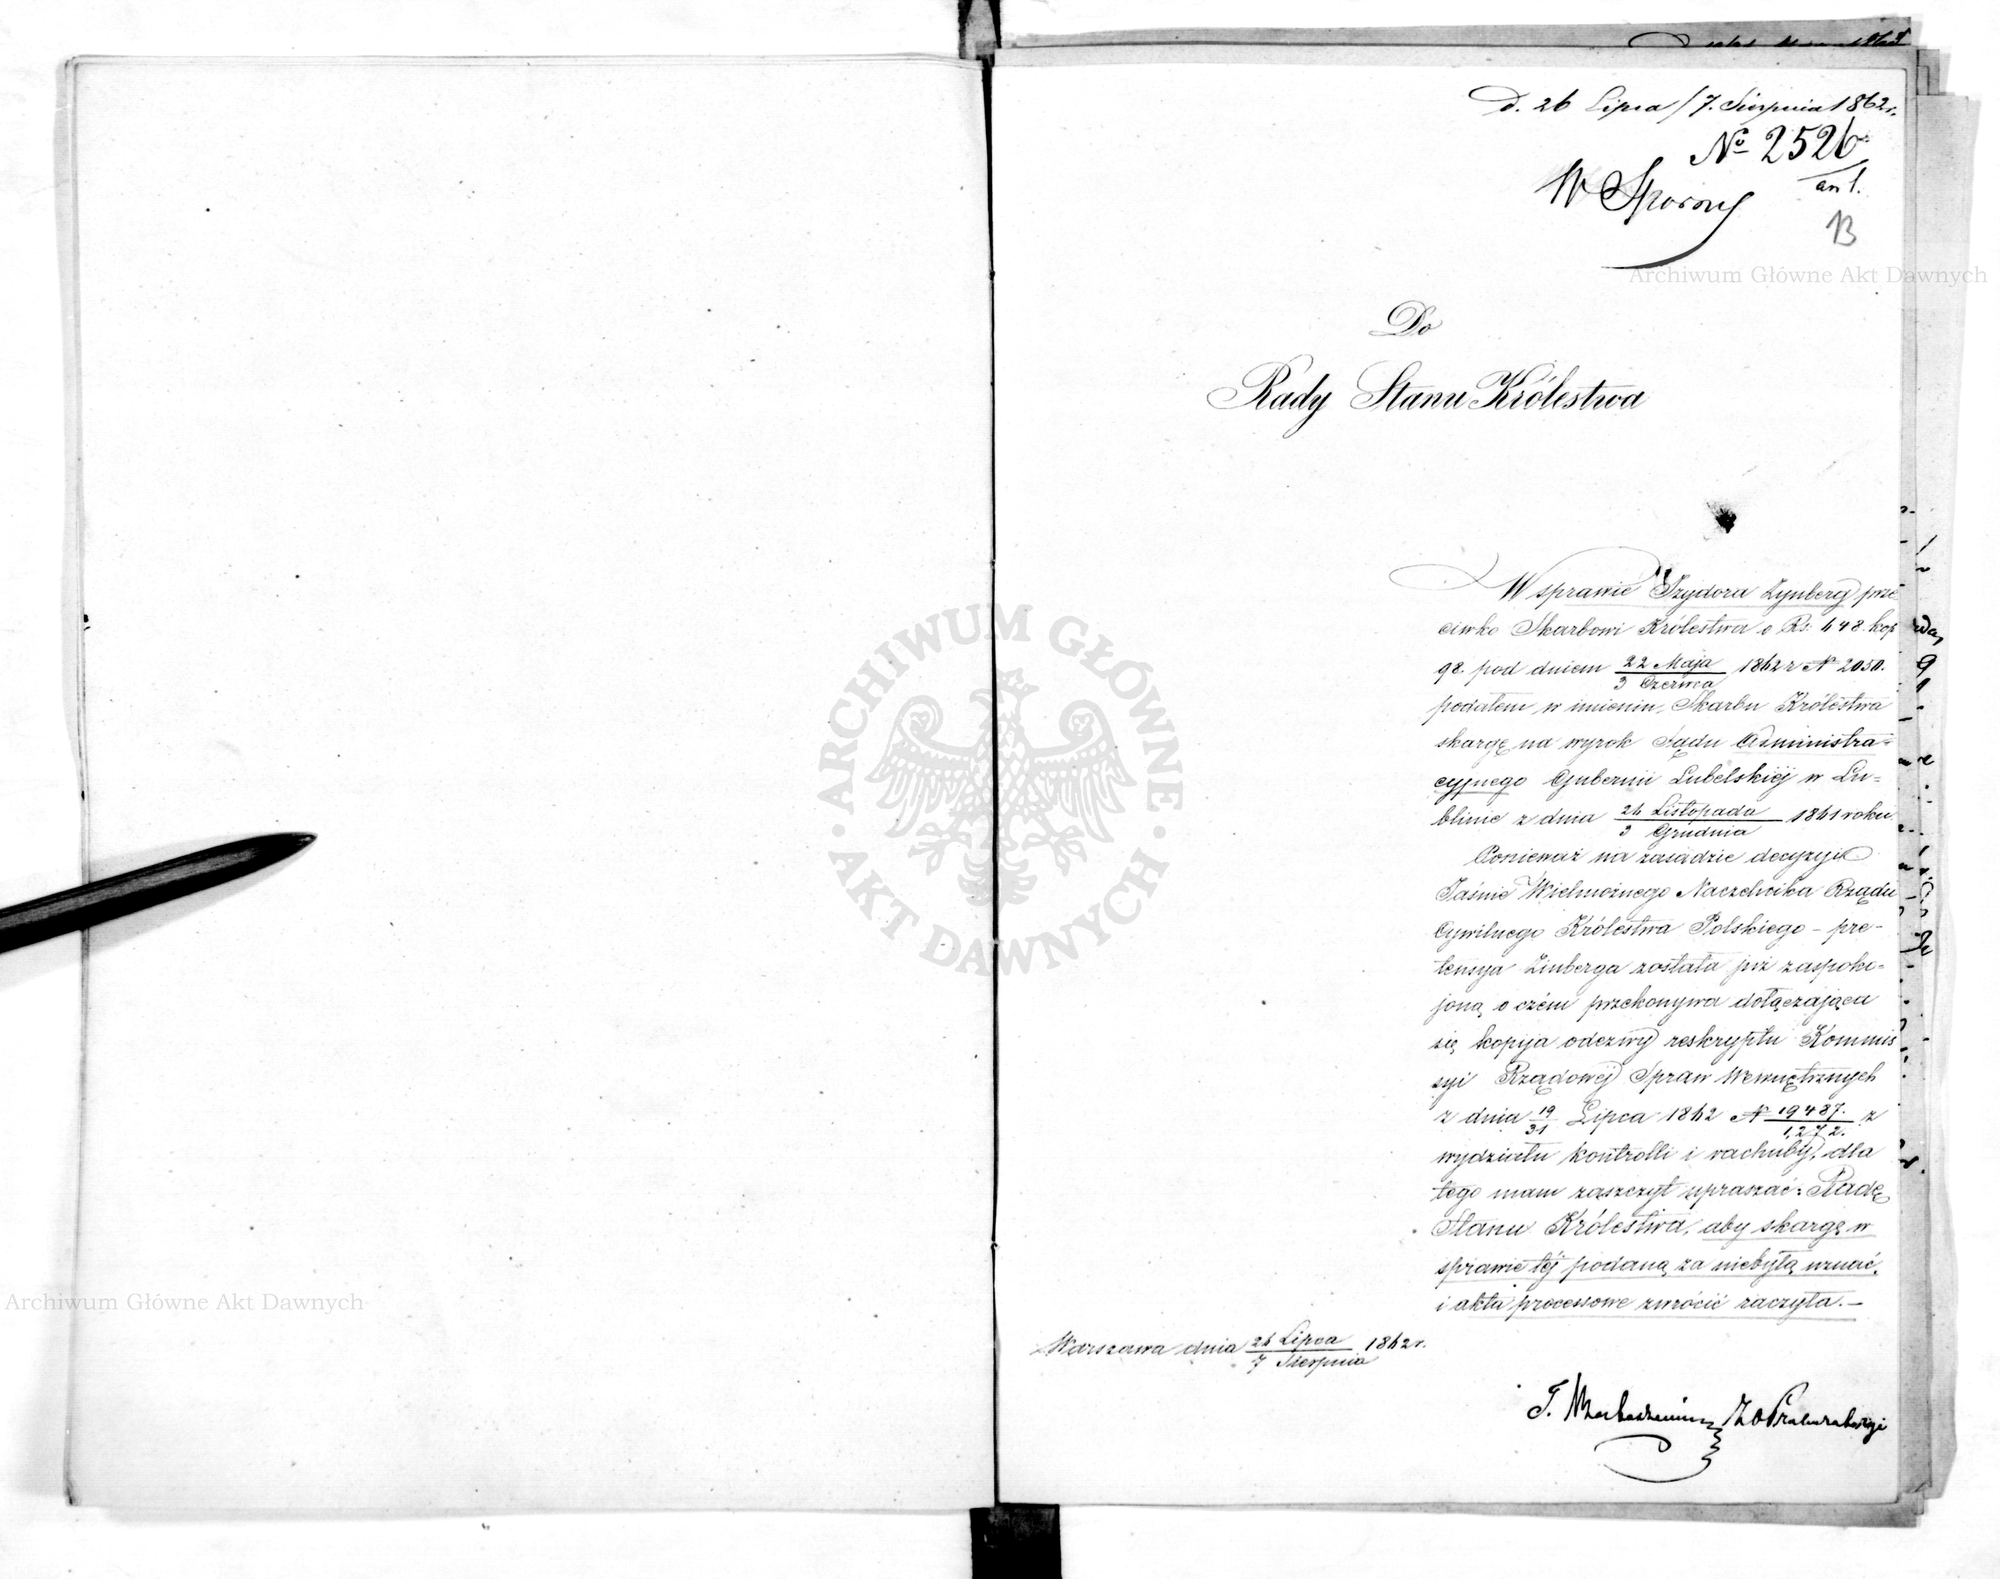 d. 26 Lipca / 7. Sierpnia 1862 r.
No 2526
W Sporny
13
Do
Rady Stanu Królestwa
W sprawie Izydora Zynberg prze
ciwko Skarbowi Królestwa o Rs: 448. kop
98. pod dniem 22 Maja / 3 Czerwca 1862 r No 2050.
podałem w imieniu Skarbu Królestwa
skargę na wyrok Sądu Administra=
cyjnego Gubernii Lubelskiéj w Lu=
blinie z dnia 21 Listopada / 3 Grudnia 1861 roku.
Ponieważ na zasadzie decyzyi
Jaśnie Wielmożnego Naczelnika Rządu
Cywilnego Królestwa Polskiego – pre-
tensya Zinberga została już zaspoko=
joną o czém przekonywa dołączająca
się kopija odezwy reskryptu Kommis
syi Rządowéj Spraw Wewnętrznych
z dnia 19/31 Lipca 1862 No 19487./1,272. z
wydziału kontrolli i rachuby, dla
tego mam zaszczyt upraszać Radę
Stanu Królestwa, aby skargę w
sprawie téj podaną za niebyłą uznać,
i akta processowe zwrócić raczyła. –
Warszawa dnia 26 Lipca / 7 Sierpnia 1862 r.
Archiwum Główne Akt Dawnych
Archiwum Główne Akt Dawnych
ARCHIWUM GŁÓWNE
AKT DAWNYCH